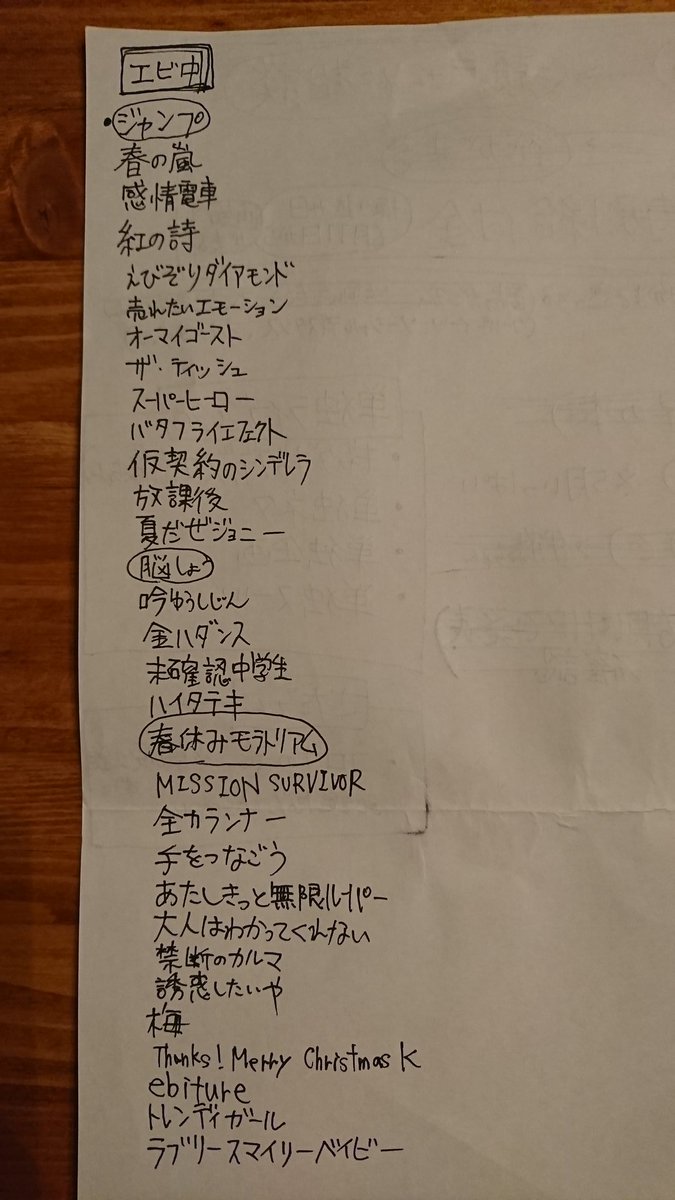 エビ中
・ジャンプ
春の嵐
感情電車
紅の詩
えびぞりダイアモンド
売れたいエモーション
オーマイゴースト
ザ・ティッシュ
スーパーヒーロー
バタフライエフェクト
仮契約のシンデレラ
放課後
夏だぜジョニー
脳しょう
吟ゆうしじん
金八ダンス
未確認中学生
ハイタテキ
春休みモラトリアム
MISSION SURVIVOR
全力ランナー
手をつなごう
あたしきっと無限ルーパー
大人はわかってくれない
禁断のカルマ
誘惑したいや
梅
Thanks! Merry Christmas K
ebiture
トレンディガール
ラブリースマイリーベイビー